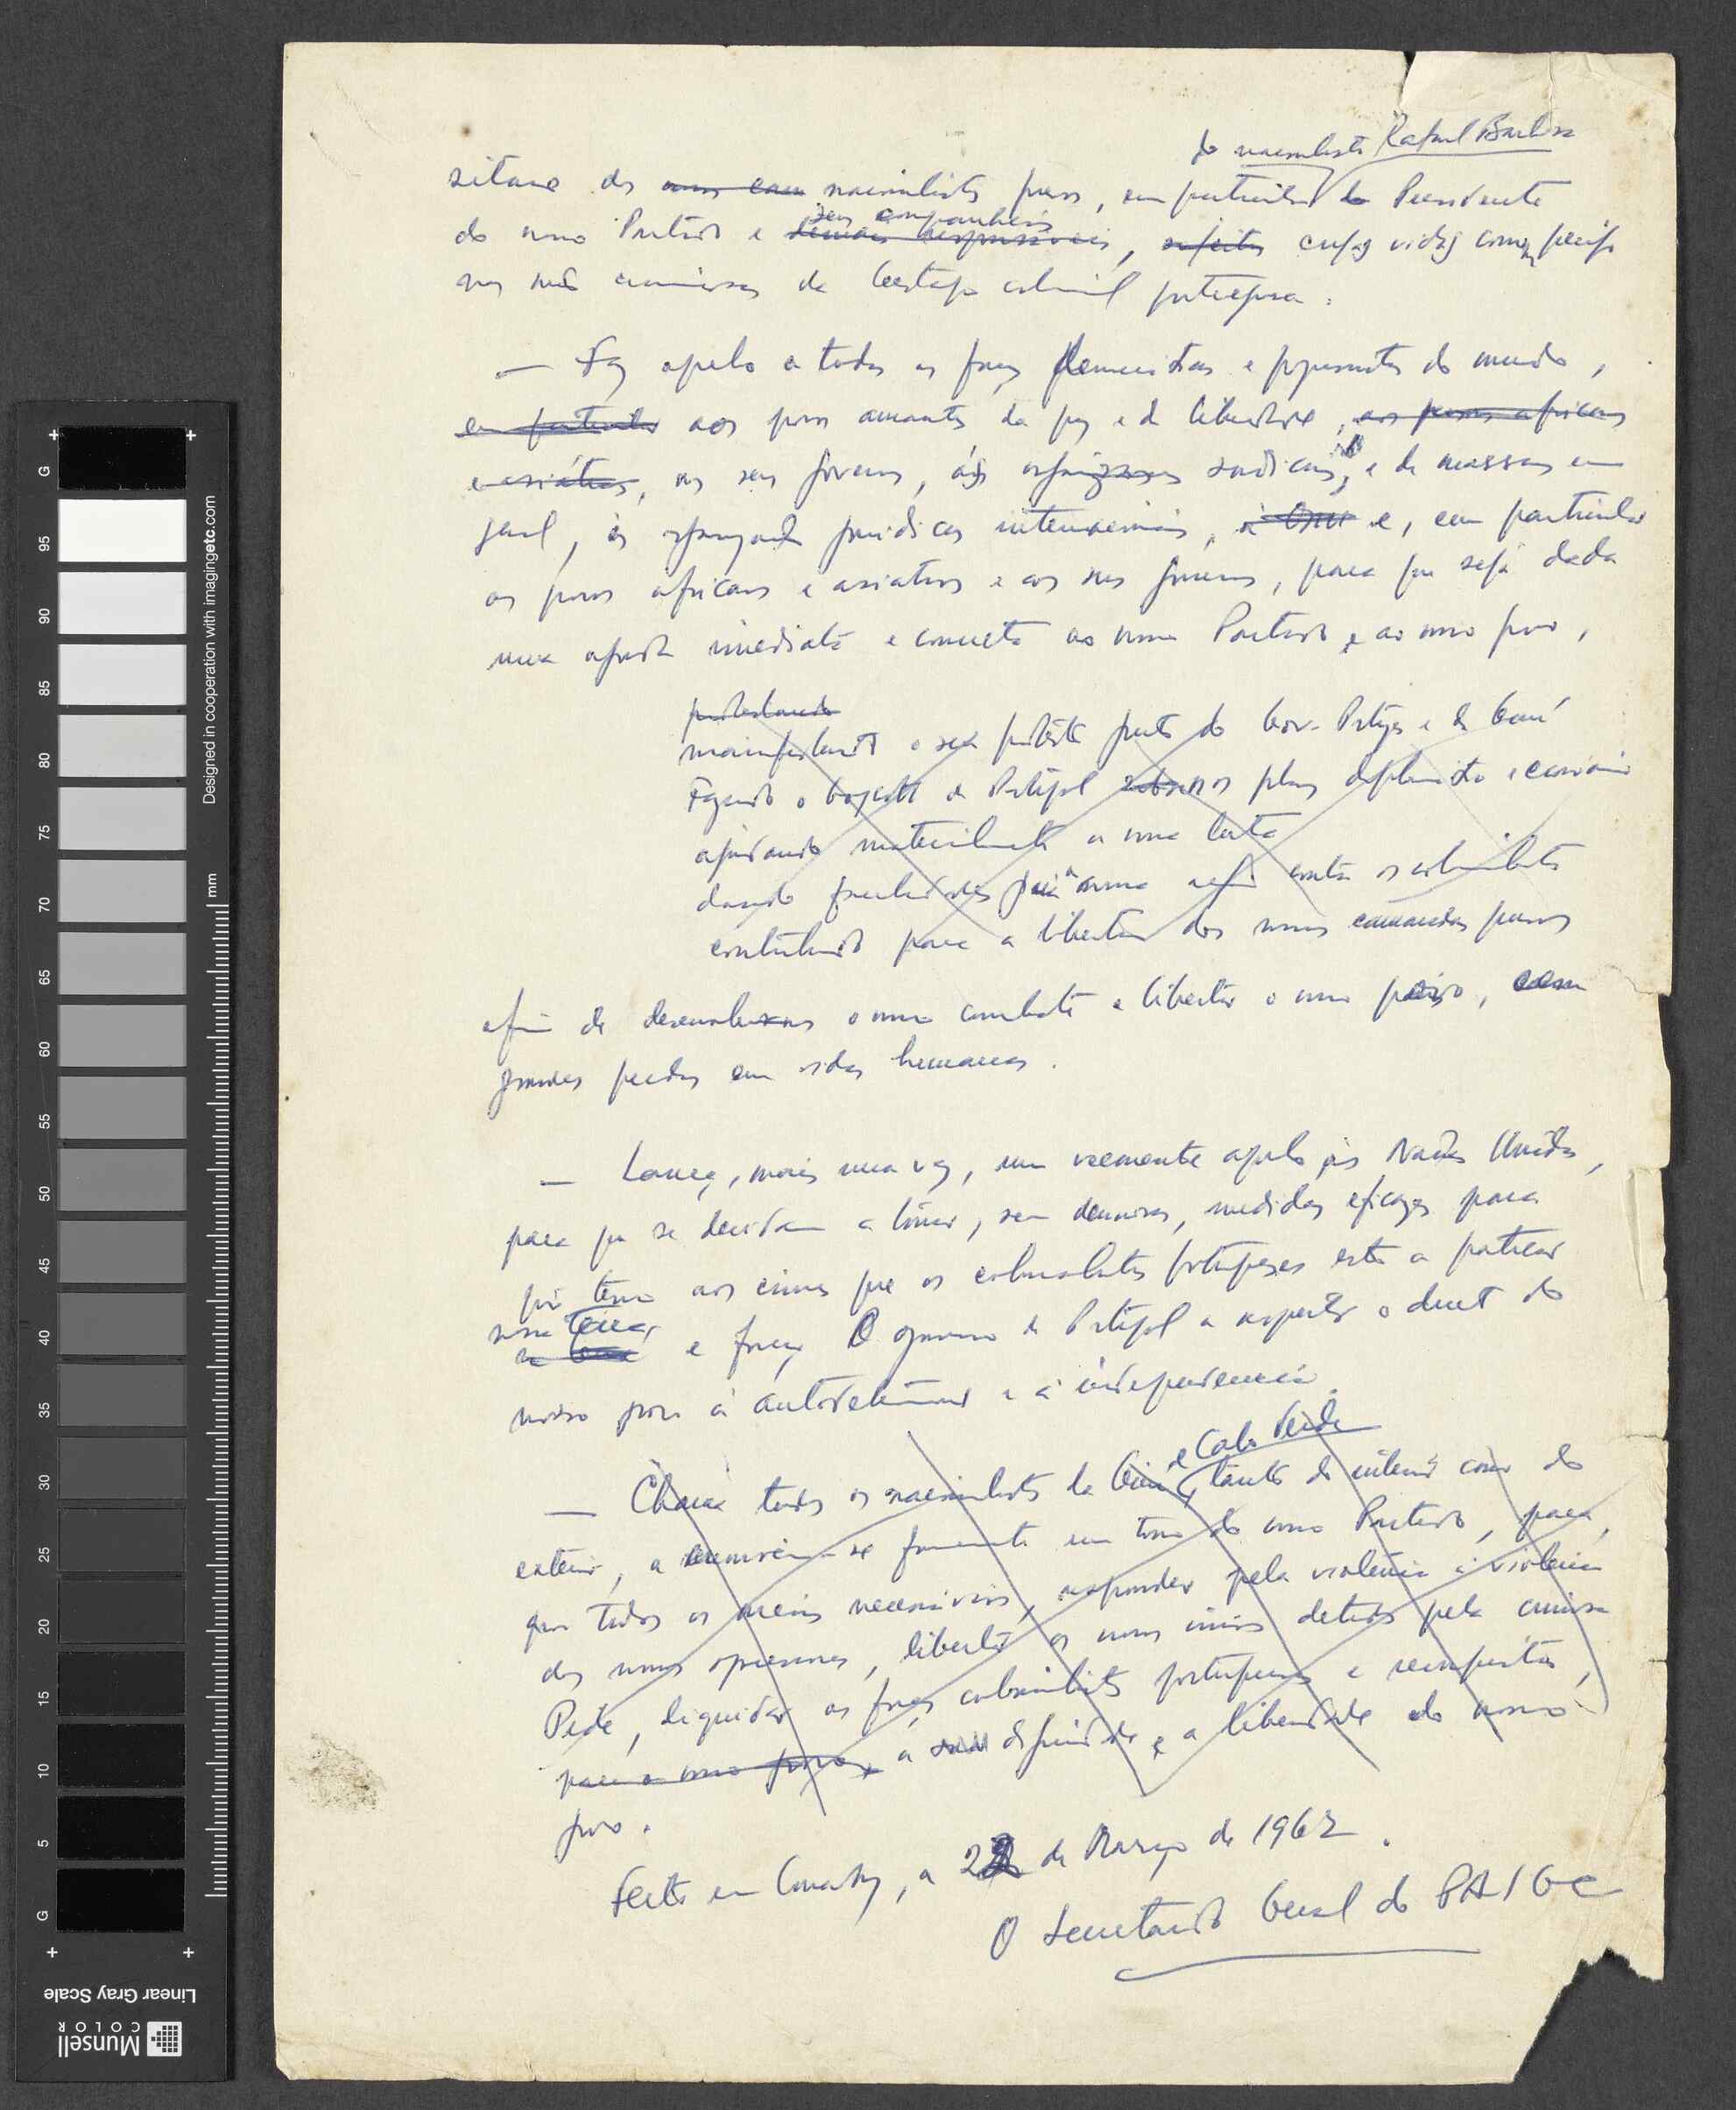 do nacionalista Rafael Barbosa
sitare dos nacionalistas presos, em particular do Presidente
seus companheiros
do nosso Partido e demais responsáveis, sujeitos cujas vidas correm perigo
nas mãos criminosas da Gestapo colonial portuguesa.
— Faz apelo a todas as forças democráticas e progressistas do mundo,
em particular aos povos amantes da paz e da liberdade, aos povos africanos
e asiáticos, aos seus governos, às organizações sindicais, e de massas em
geral, às organizações jurídicas internacionais, à ONU e, em particular
aos povos africanos e asiáticos e aos seus governos, para que seja dada
uma ajuda imediata e concreta ao nosso Partido e ao nosso povo,
protestando
manifestando o seu protesto junto do Gov. Portugês e da Guiné
Fazendo o boycott de Portugal nos planos diplomático e económico
ajudando materialmente a nossa luta
dando facilidades para a nossa acção contra os colonialistas
contribuindo para a libertação dos nossos camaradas presos
afim de desenvolvermos o nosso combate e libertar o nosso paiz, sem
grandes perdas em vidas humanas.
— Lança, mais uma vez, um veemente apelo às Nações Unidas,
para que se decidam a tomar, sem demoras, medidas eficazes para
pôr termo aos crimes que os colonialistas portugueses estão a praticar
nossa terra,
na e forçar O governo de Portugal a respeitar o direito do
nosso povo à autodeterminação e à independência.
e Cabo Verde
— Chama todos os nacionalistas da Guiné, tanto do interior como do
exterior, a unirem-se firmemente em torno do nosso Partido, para,
por todos os meios necessários, responder pela violência à violência
dos nossos opressores, libertar os nossos irmãos detidos pela criminosa
Pide, liquidar as forças colonialistas portuguesas e reconquistar,
para o nosso povo, a dignidade e a liberdade do nosso
povo.
Feito em Conakry, a 22 de Março de 1962.
O Secretário Geral do PAIGC
G
95
90
85
80
75
70
65
60
55
50
45
40
35
30
25
20
15
10
5
G
mm
Designed in cooperation with imagingetc.com
Linear Gray Scale
Munsell
COLOR